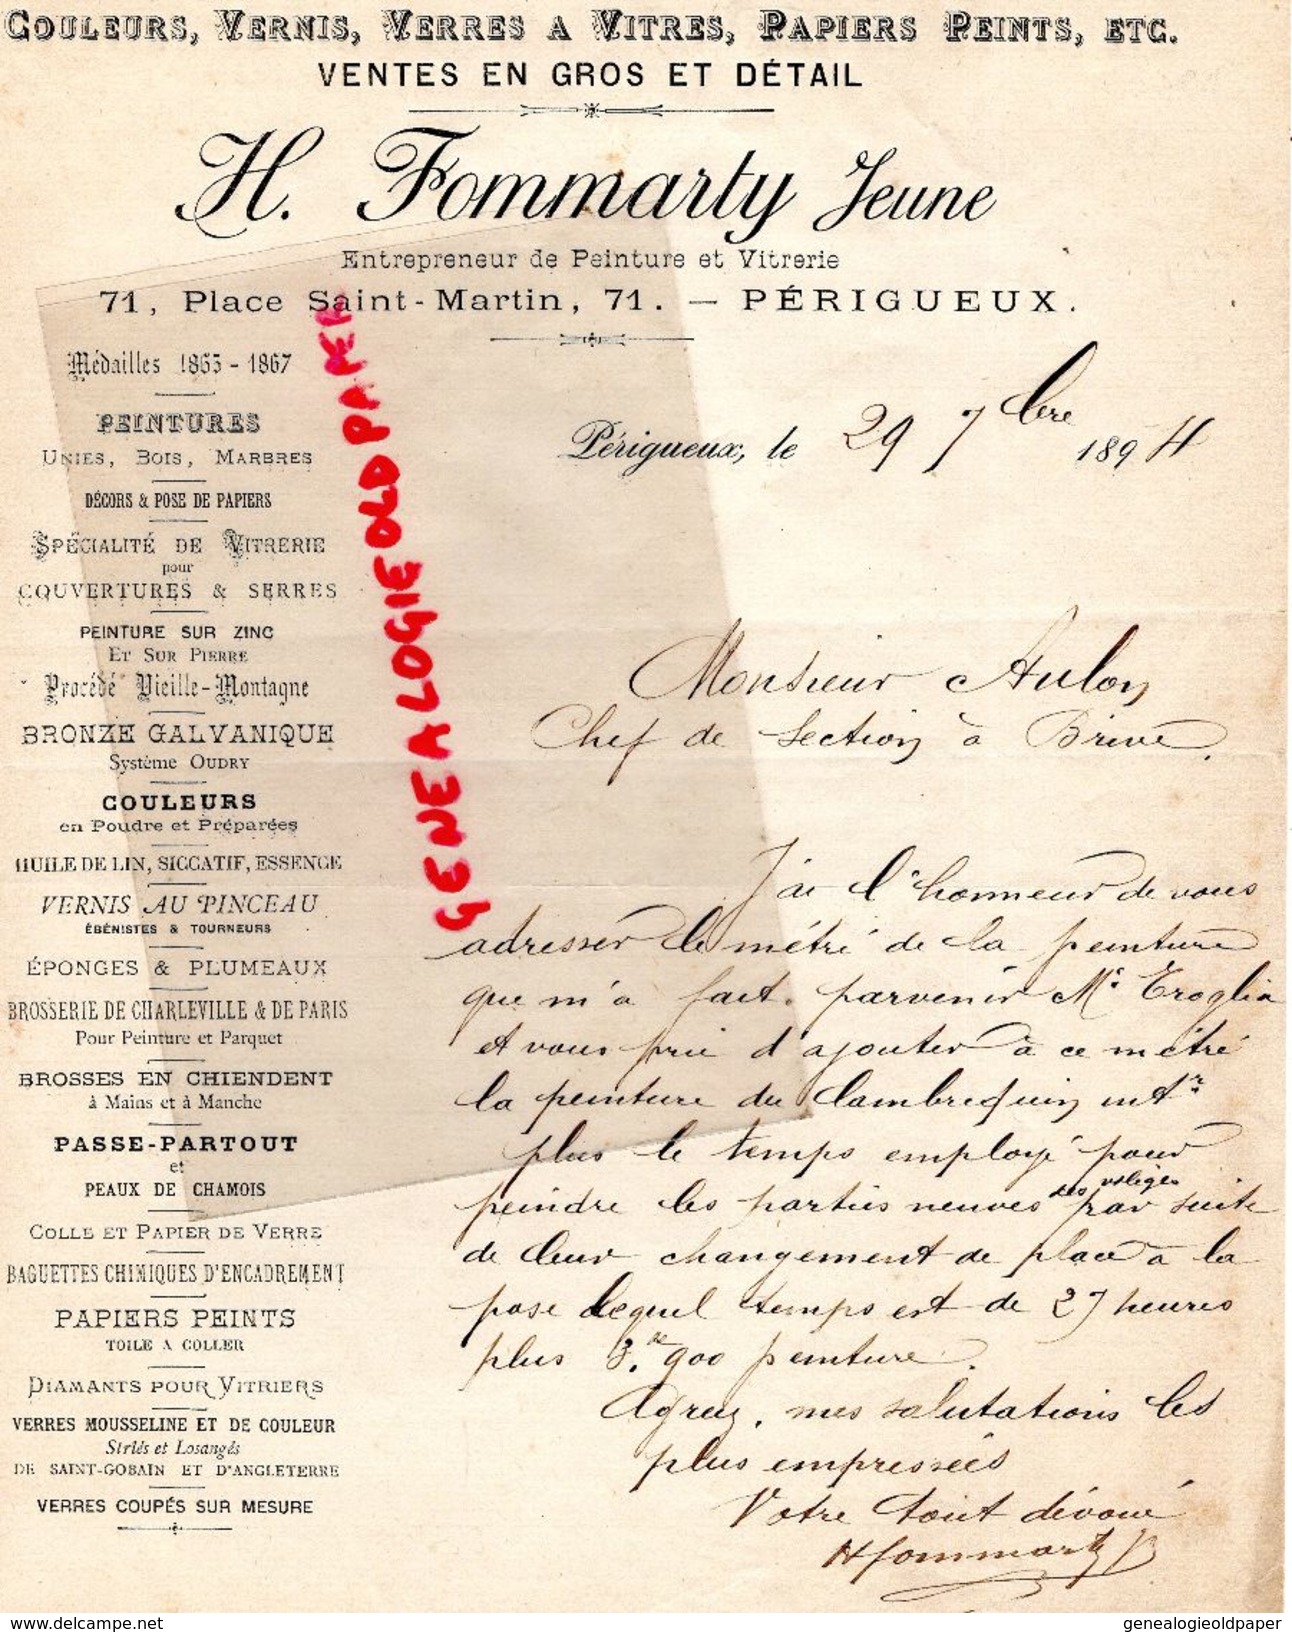 COULEURS, VERNIS, VERRES A VITRES, PAPIERS PEINTS, ETC.
VENTES EN GROS ET DÉTAIL
H. Fommarty Jeune
Entrepreneur de Peinture et Vitrerie
71, Place Saint-Martin, 71. — PÉRIGUEUX.
Médailles 1865 - 1867
PEINTURES
UNIES, BOIS, MARBRES
DÉCORS & POSE DE PAPIERS
SPÉCIALITÉ DE VITRERIE
pour
COUVERTURES & SERRES
PEINTURE SUR ZINC
ET SUR PIERRE
Procédé Vieille-Montagne
BRONZE GALVANIQUE
Système OUDRY
COULEURS
en Poudre et Préparées
HUILE DE LIN, SICCATIF, ESSENCE
VERNIS AU PINCEAU
ÉBÉNISTES & TOURNEURS
ÉPONGES & PLUMEAUX
BROSSERIE DE CHARLEVILLE & DE PARIS
Pour Peinture et Parquet
BROSSES EN CHIENDENT
à Mains et à Manche
PASSE-PARTOUT
et
PEAUX DE CHAMOIS
COLLE ET PAPIER DE VERRE
BAGUETTES CHIMIQUES D'ENCADREMENT
PAPIERS PEINTS
TOILE A COLLER
DIAMANTS POUR VITRIERS
VERRES MOUSSELINE ET DE COULEUR
Striés et Losangés
DE SAINT-GOBAIN ET D'ANGLETERRE
VERRES COUPÉS SUR MESURE
GENEALOGIEOLDPAPER
Périgueux, le 29 7bre 1894
Monsieur Aulon
Chef de Section à Brive.
J'ai l'honneur de vous
adresser le métré de la peinture
que m'a fait parvenir Mr Troglia
et vous prie d'ajouter à ce métré
la peinture du lambrequin intr
plus le temps employé pour
peindre les parties neuves des voliges par suite
de leur changement de place à la
pose lequel temps est de 27 heures
plus 3.900 peinture.
Agréez, mes salutations les
plus empressées
Votre tout dévoué
H fommarty
www.delcampe.net
genealogieoldpaper